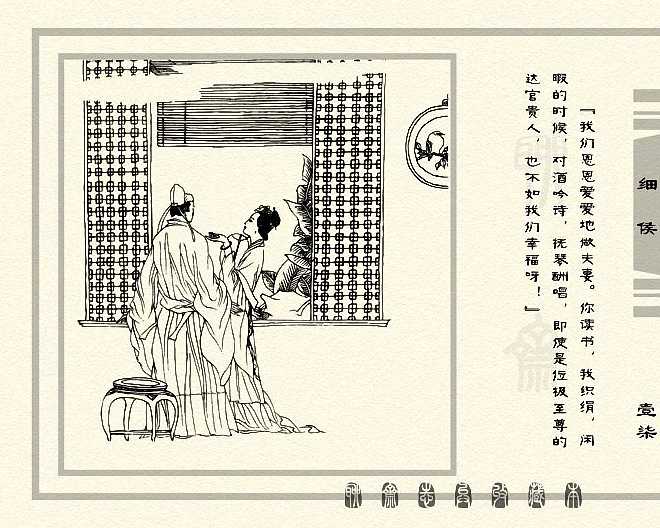 细侯
壹柒
『我们恩恩爱爱地做夫妻。你读书，我织绢，闲
暇的时候，对酒吟诗，抚琴酬唱，即使是位极至尊的
达官贵人，也不如我们幸福呀！』